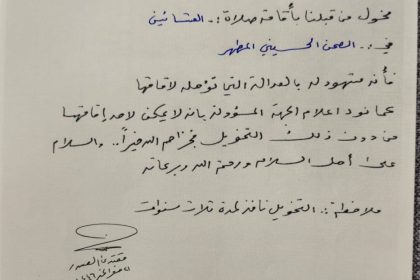 مخول من قبلنا بأقامة صلاة :. العشائين
في :. الصحن الحسيني المطهر
فأنه مشهود له بالعدالة التي تؤهله لاقامتها
كما نود اعلام الجهة المسؤولة بانه لا يمكن لاحد إقامتها
من دون ذلك التخويل فجزاهم الله خيراً .. والسلام
على أهل السلام ورحمة الله وبركاته
ملاحظة :. التخويل نافذ لمدة ثلاث سنوات
مقتدى الصدر